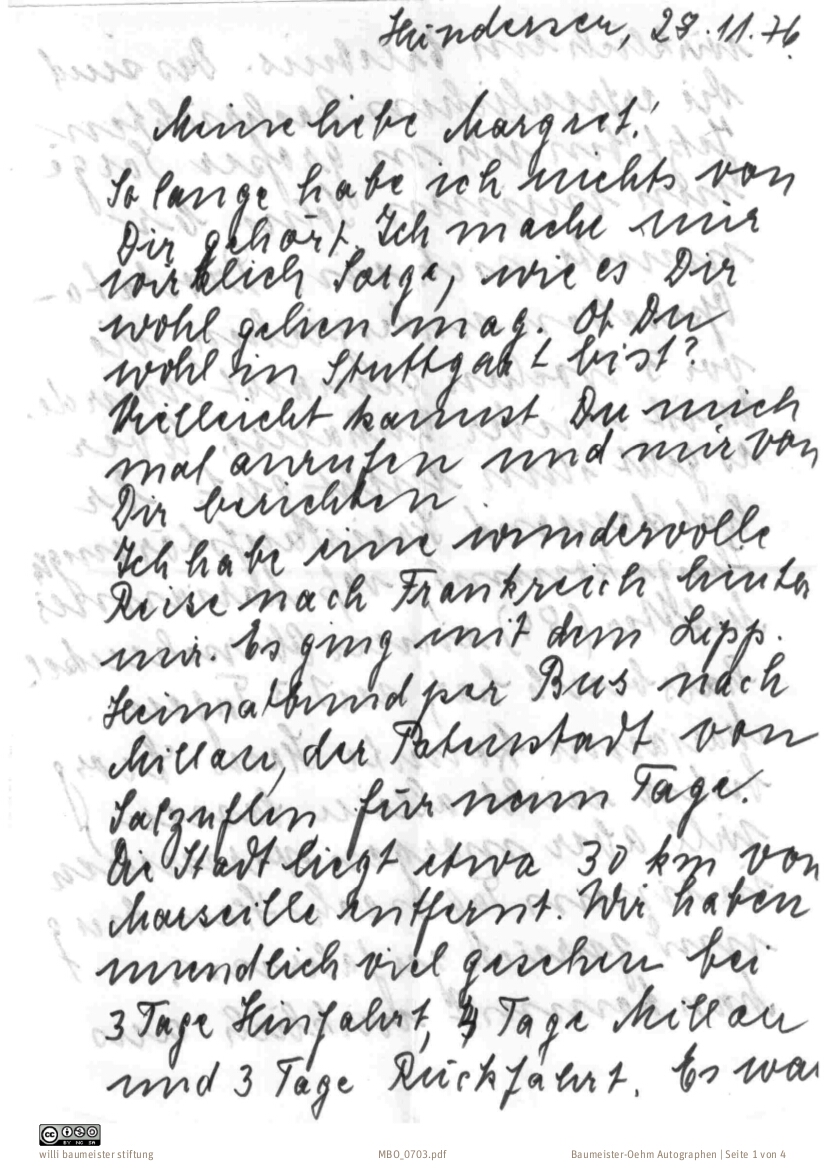 Hiddesen, 29.11.76.
Meine liebe Margret!
So lange habe ich nichts von
Dir gehört. Ich mache mir
wirklich Sorge, wie es Dir
wohl gehen mag. Ob Du
wohl in Stuttgart bist?
Vielleicht kannst Du mich
mal anrufen und mir von
Dir berichten
Ich habe eine wundervolle
Reise nach Frankreich hinter
mir. Es ging mit dem Lipp.
Heimatbund per Bus nach
Millau, der Patenstadt von
Salzuflen für neun Tage.
Die Stadt liegt etwa 30 km von
Marseille entfernt. Wir haben
unendlich viel gesehen bei
3 Tage Hinfahrt, 4 Tage Millau
und 3 Tage Rückfahrt. Es war
willi baumeister stiftung
MBO_0703.pdf
Baumeister-Oehm Autographen | Seite 1 von 4